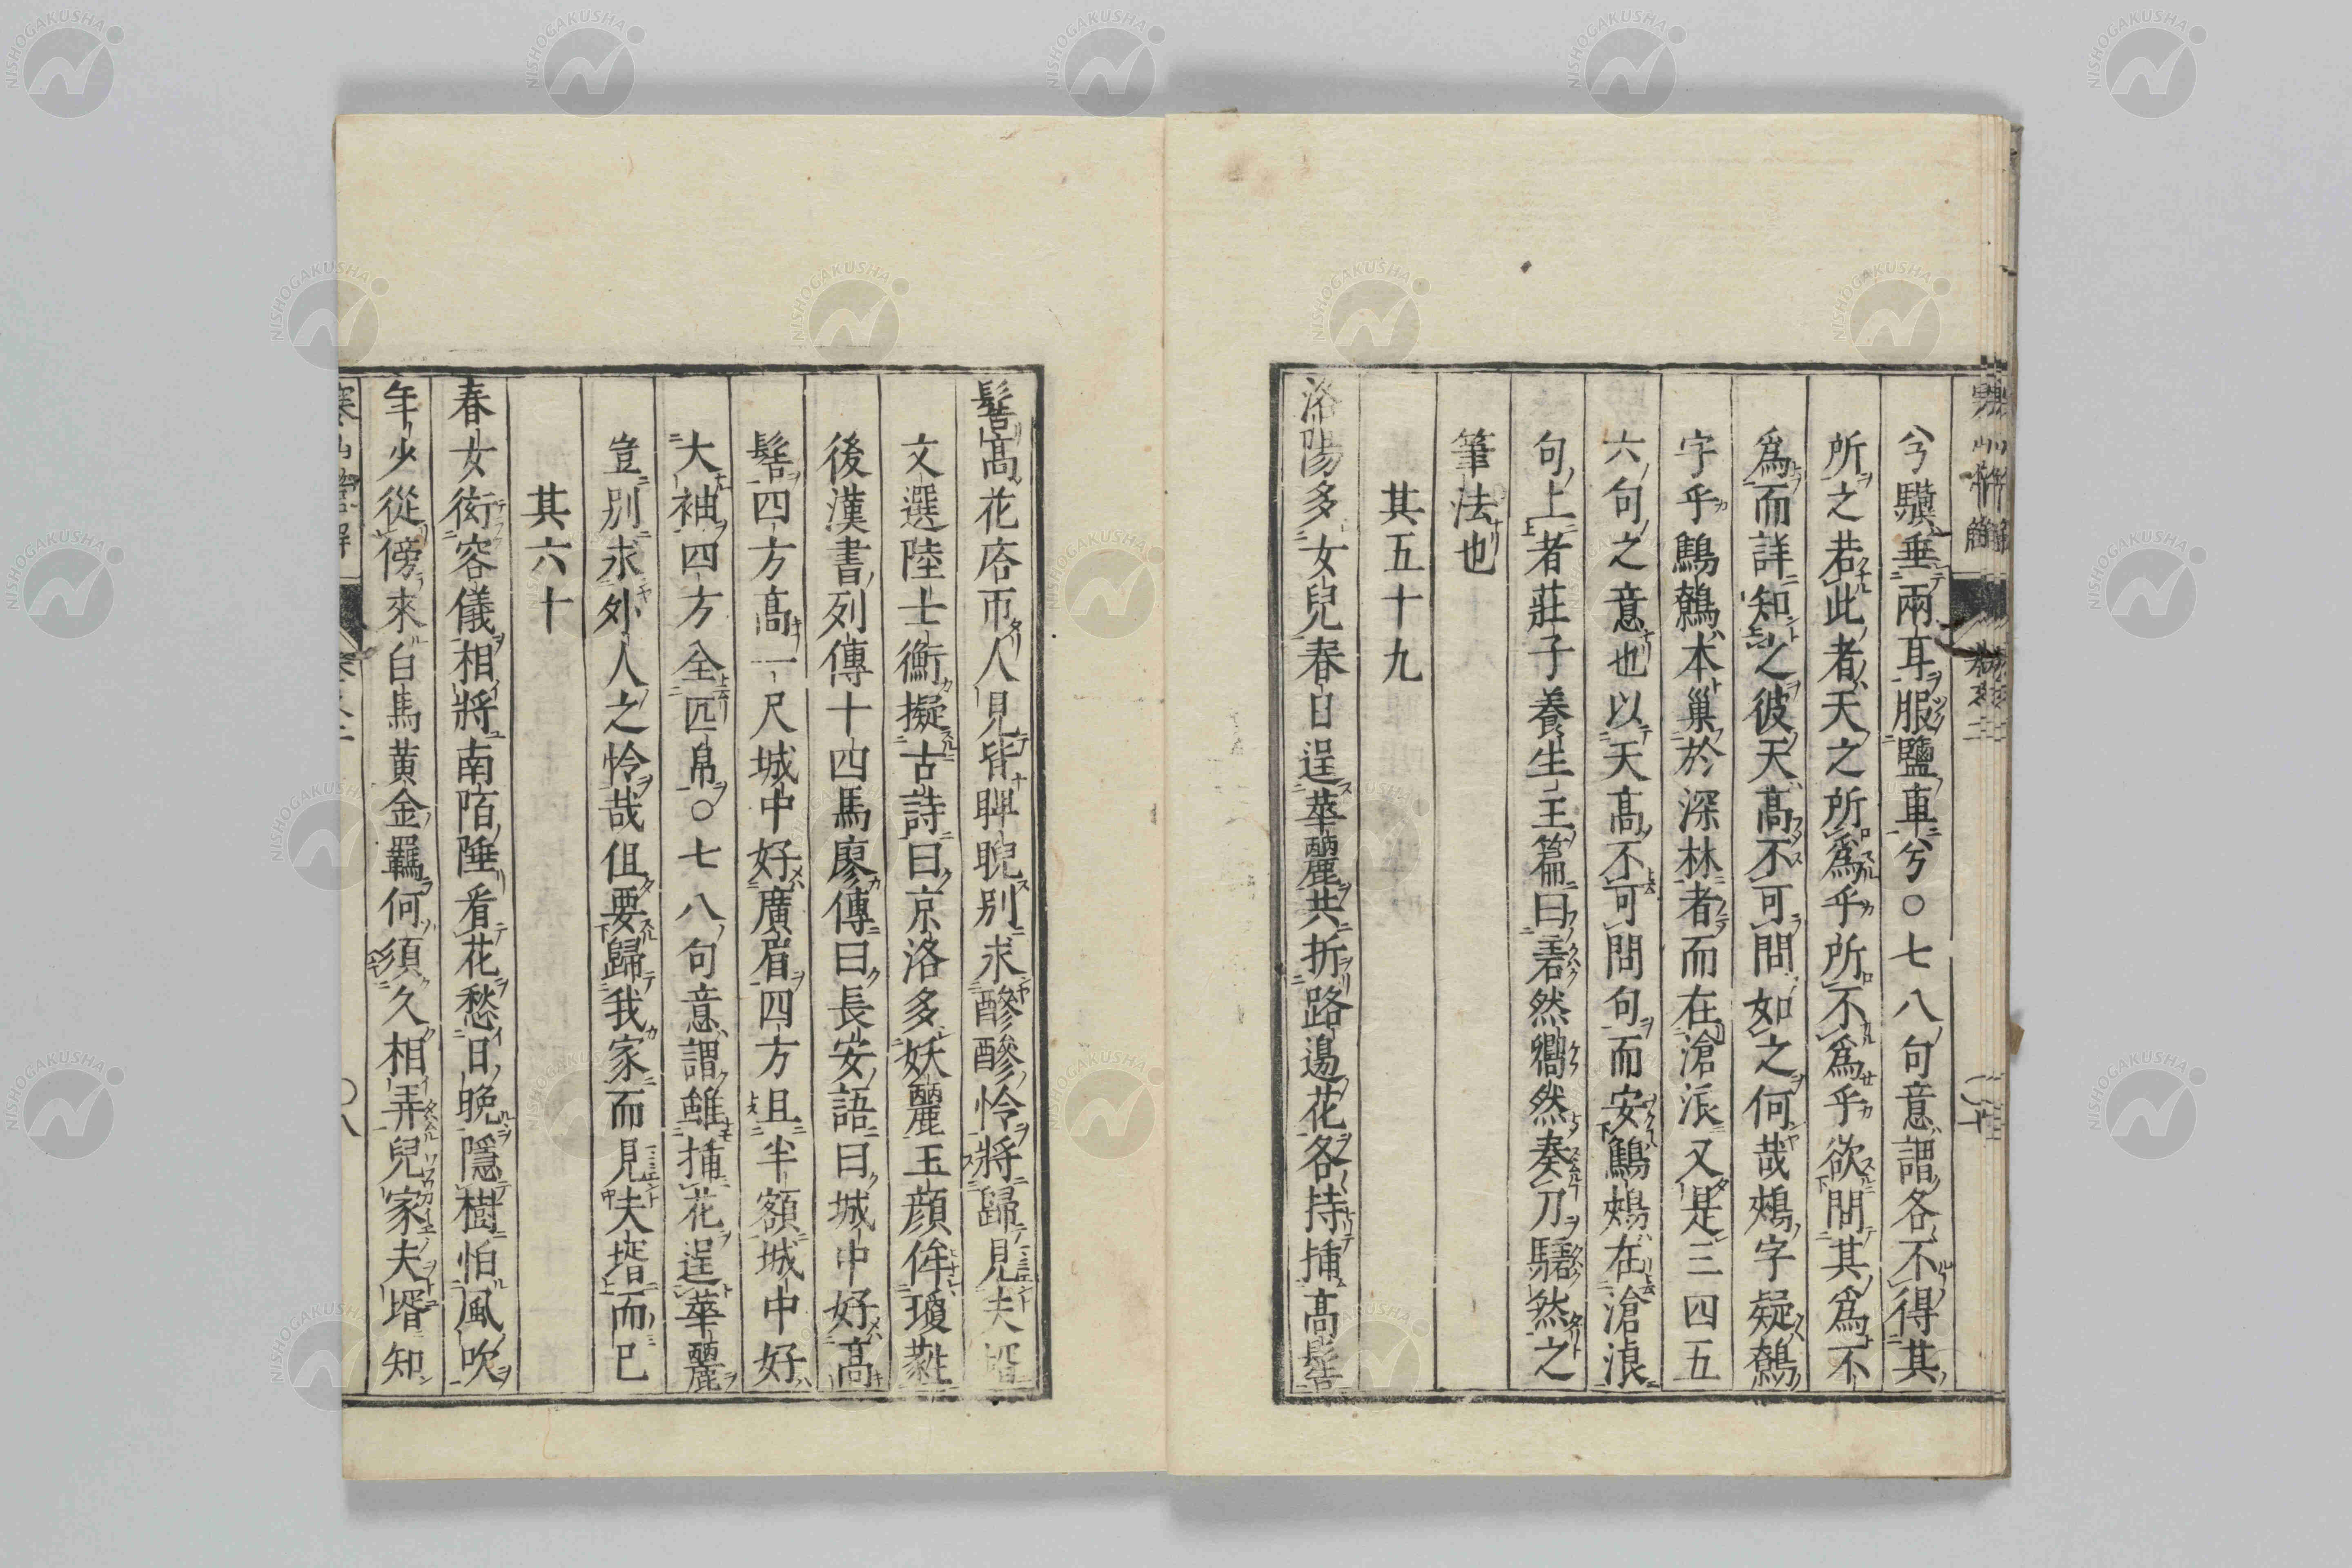 兮驥垂兩耳服鹽車兮○七八句意謂各不得其
所之若此者天之所爲乎所不爲乎欲問其爲不
爲而詳知之彼天高不可問如之何哉鴂字疑鶺
字乎鷦鷯本巢於深林者而在滄浪又是三四五
六句之意也以天高不可問句而安鷦鴂在滄浪
句上者莊子養生主篇曰砉然嚮然奏刀騞然之
筆法也
其五十九
洛陽多女兒春日逞華麗共折路邊花各持插高髻
髻高花匼帀人見皆睥睨別求醦醦怜將歸見夫壻
文選陸士衡擬古詩曰京洛多妖麗玉顏侔瓊蕤
後漢書列傳十四馬廖傳曰長安語曰城中好高
髻四方高一尺城中好廣眉四方且半額城中好
大袖四方全匹帛○七八句意謂雖插花逞華麗
豈別求外人之怜哉但要歸我家而見夫壻而已
其六十
春女衒容儀相將南陌陲看花愁日晚隱樹怕風吹
年少從傍來白馬黃金羈何須久相弄兒家夫壻知
NISHOGAKUSHA